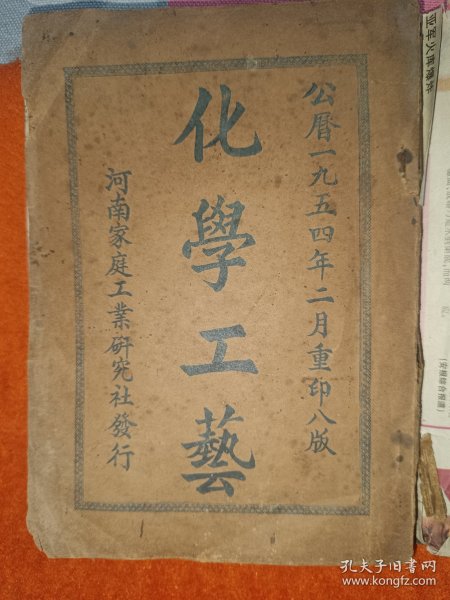 公曆一九五四年二月重印八版
化學工藝
河南家庭工業研究社發行
(安報綜合報道)
孔夫子旧书网
www.kongfz.com